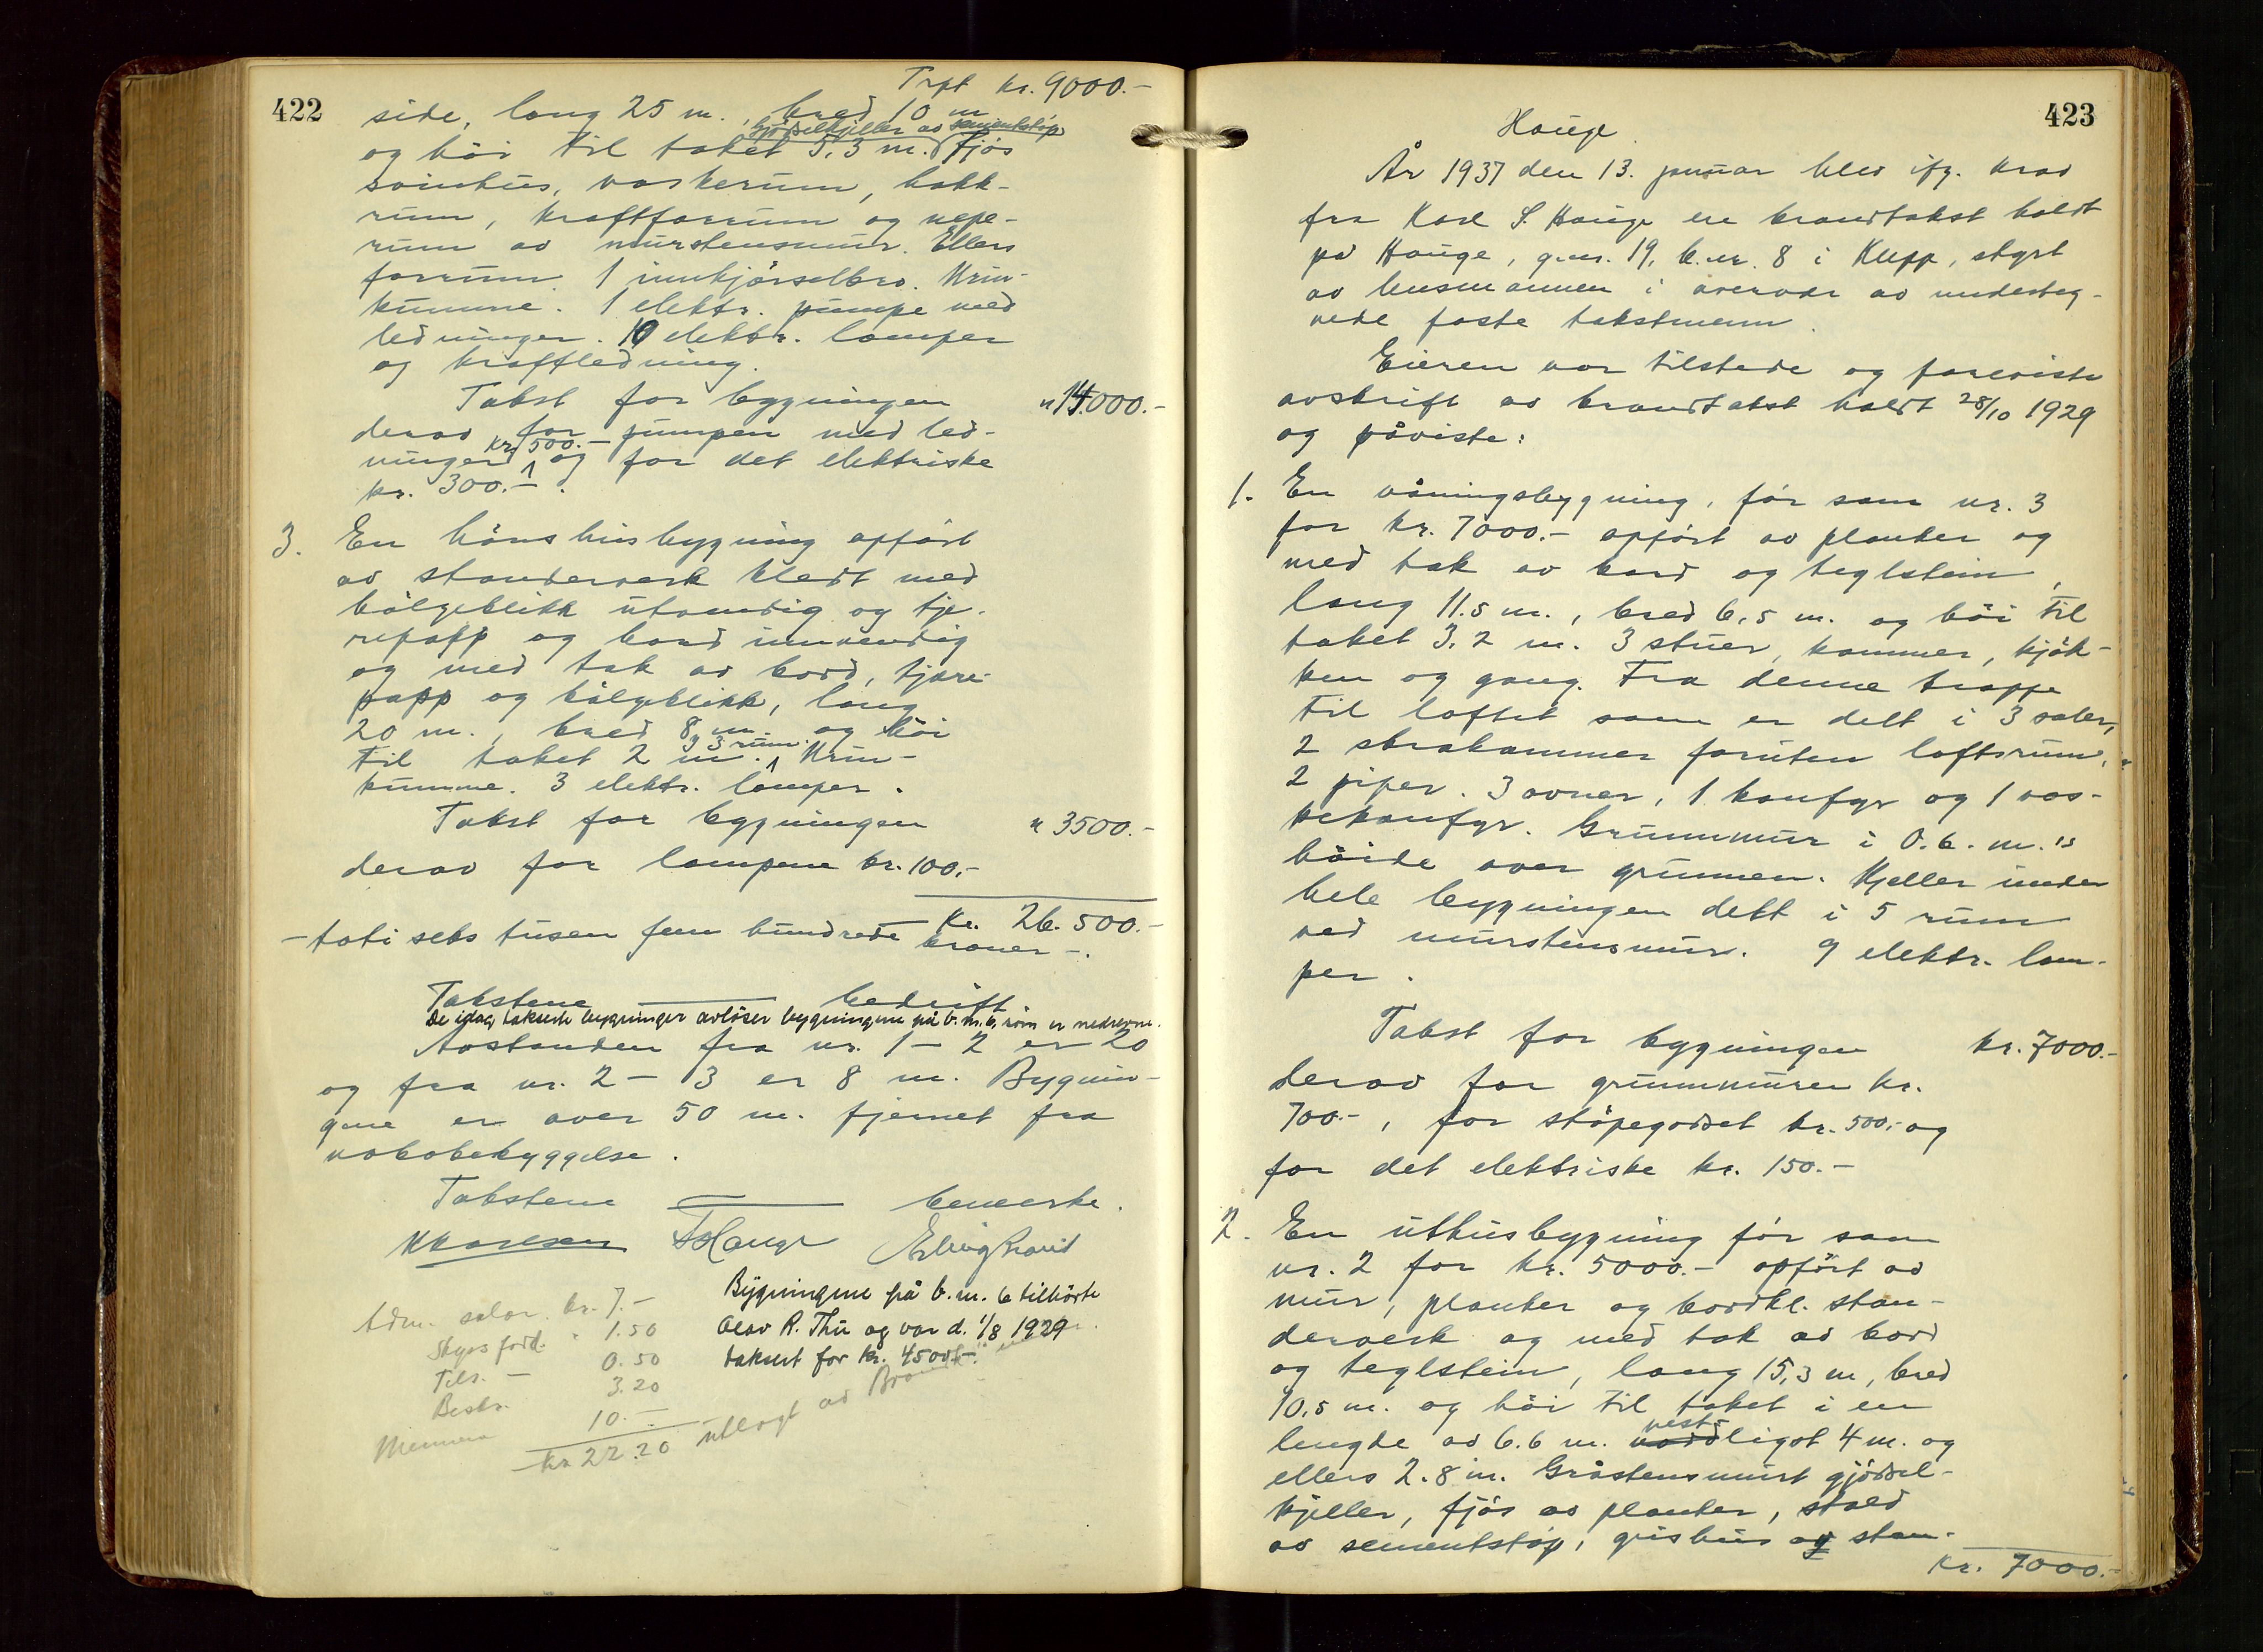 422
Trpt kr. 9000.-
side, lang 25 m., bred 10 m
gjödselkjeller av sementstöp
og höi til taket 5,3 m. Fjös
svinhus, vaskerum, hakk-
rum, kraftforrum og nepe-
rum av murstensmur. Ellers
forrum. 1 innkjörselbro. Urin-
kumme. 1 elektr. pumpe med
ledninger. 10 elektr. lamper
og kraftledning.
Takst for bygningen " 14000.-
derav for pumpen med led-
ninger kr. 500.- og for det elektriske
kr. 300.-.
3. En hönshusbygning opfört
av standerverk kledt med
bölgeblikk utvendig og tje-
repapp og bord innvendig
og med tak av bord, tjære-
papp og bölgeblikk, lang
20 m., bred 8 m. og höi
til taket 2 m. 3 rum. Urin-
kumme. 3 elektr. lamper.
Takst for bygningen " 3500.-
derav for lampene kr. 100,-
Kr. 26.500.-
- toti seks tusen fem hundrede kroner -.
Takstene bedrift
De idag takserte bygninger avlöser bygningene på b.nr. 6, som er nedrevne.
Avstanden fra nr. 1 - 2 er 20
og fra nr. 2 - 3 er 8 m. Bygnin-
gene er over 50 m. fjernet fra
nabobebyggelse.
Takstene bemerke.
K Karlsen T Hauge Erling Kvavik
Bygningene på b.nr. 6 tilhörte
Olav R. Thu og var d. 1/8 1929
taksert for kr. 4500.-
Adm. salær kr. 7.-
Skyss fordr. " 1.50
Tils. - 0.50
Bestr. 3.20
Mennene 10.-
kr 22.20 utlagt av
423
Hauge.
År 1937 den 13. januar blev ifg. krav
fra Karl S. Hauge en brandtakst holdt
på Hauge, g.nr. 19, b.nr. 8 i Klepp, styrt
av lensmannen i overvær av underteg-
nede faste takstmenn.
Eieren var tilstede og foreviste
avskrift av brandtakst holdt 28/10 1929
og påviste:
1. En våningsbygning, för som nr. 3
for kr. 7000.- opfört av planker og
med tak av bord og teglstein,
lang 11.5 m., bred 6,5 m. og höi til
taket 3,2 m. 3 stuer, kammer, kjök-
ken og gang. Fra denne trappe
til loftet som er delt i 3 saler,
2 skrakammer foruten loftsrum.
2 piper. 3 ovner, 1 komfyr og 1 vas-
kekomfyr. Grunnmur i 0.6. m.s
höide over grunnen. Kjeller under
hele bygningen delt i 5 rum
ved murstensmur. 9 elektr. lam-
per.
Takst for bygningen kr. 7000.-
derav for grunnmuren kr.
700.-, for stöpegodset kr. 500,- og
for det elektriske kr. 150.-
2. En uthusbygning för som
nr. 2 for kr. 5000.- opfört av
mur, planker og bordkl. stan-
derverk og med tak av bord
og teglstein, lang 15,3 m, bred
10,5 m. og höi til taket i en
lengde av 6.6 m. vestligst 4 m. og
ellers 2.8 m. Gråstensmurt gjödsel-
kjeller, fjös av planker, stald
av sementstöp, grishus og stan-
Kr. 7000.-